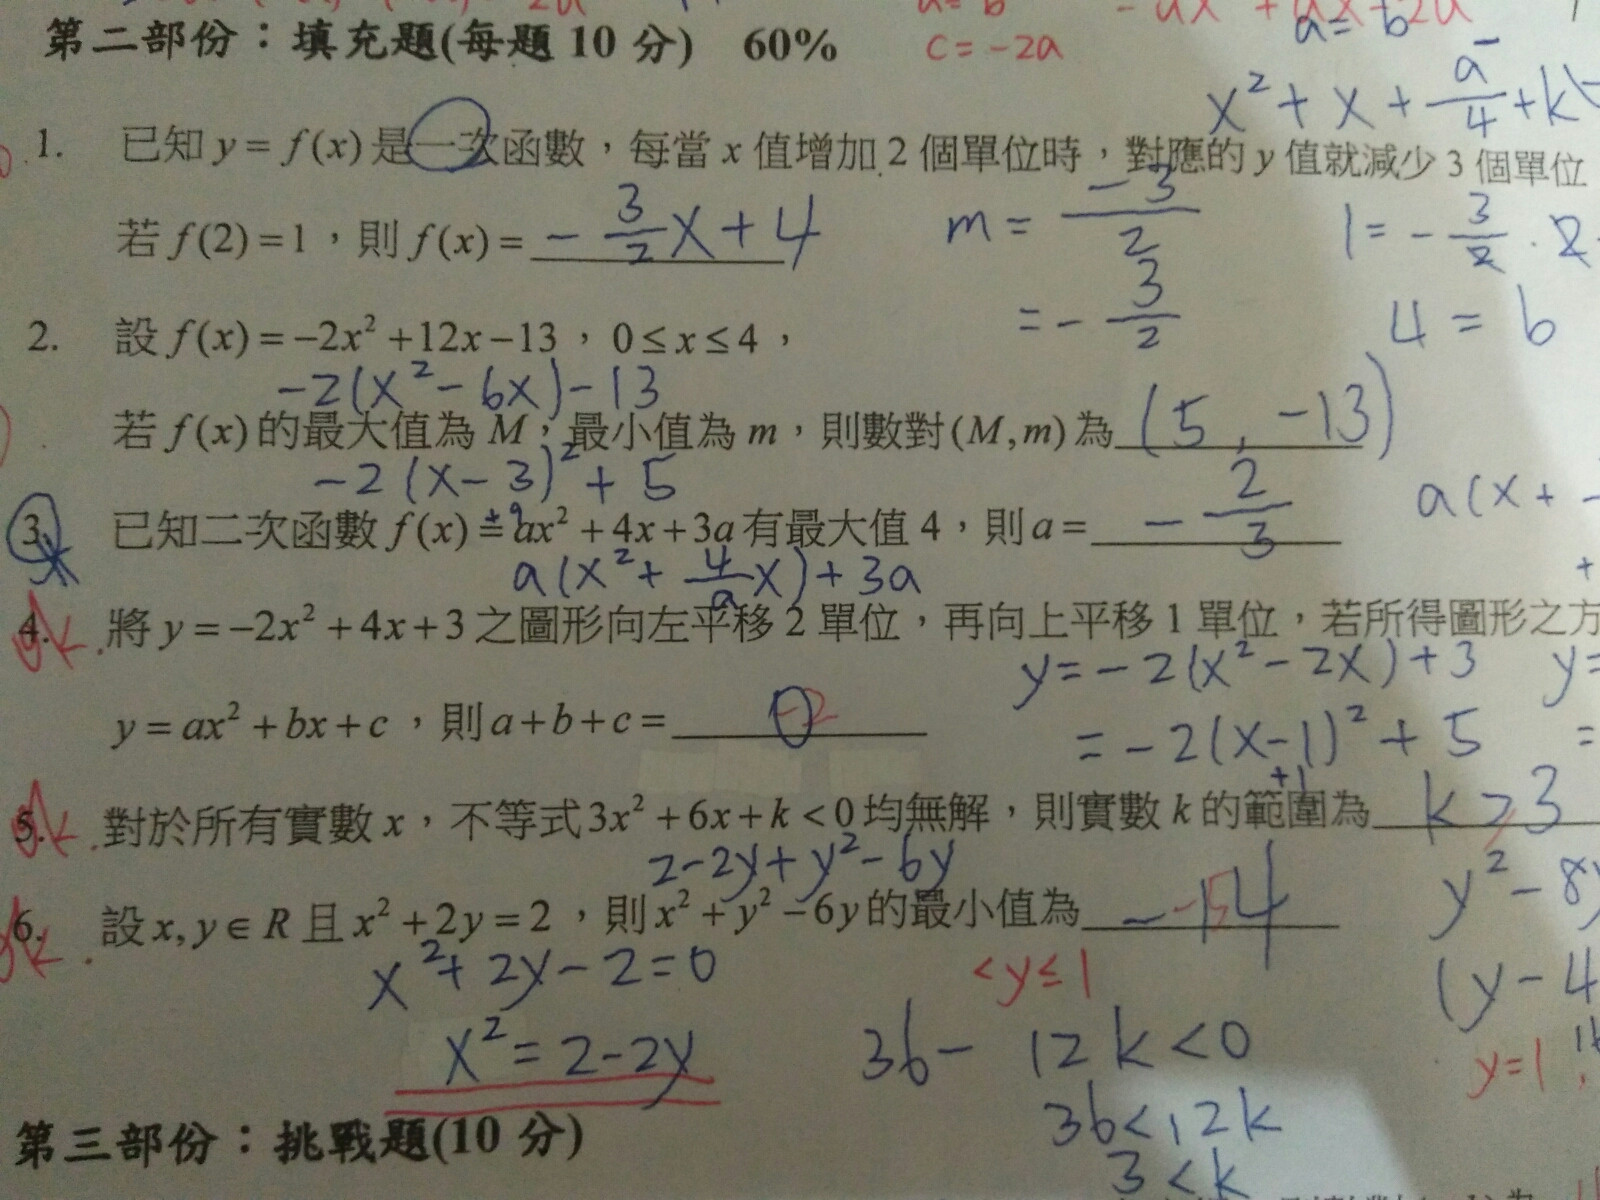 第二部份：填充題(每題 10 分) 60%
c = -2a
a = b
x² + x + a/4 + k
1. 已知 y = f(x) 是一次函數，每當 x 值增加 2 個單位時，對應的 y 值就減少 3 個單位
若 f(2) = 1，則 f(x) = -3/2 x + 4
m = -3/2
1 = -3/2 · 2
= -3/2
4 = b
2. 設 f(x) = -2x² + 12x - 13，0 ≤ x ≤ 4，
-2(x² - 6x) - 13
若 f(x) 的最大值為 M，最小值為 m，則數對 (M, m) 為 (5, -13)
-2(x - 3)² + 5
3. 已知二次函數 f(x) = ax² + 4x + 3a 有最大值 4，則 a = -2/3
a(x +
a(x² + 4/a x) + 3a
4. 將 y = -2x² + 4x + 3 之圖形向左平移 2 單位，再向上平移 1 單位，若所得圖形之方
y = -2(x² - 2x) + 3
y =
y = ax² + bx + c，則 a + b + c = 0 -2
= -2(x - 1)² + 5
+1
5. 對於所有實數 x，不等式 3x² + 6x + k < 0 均無解，則實數 k 的範圍為 k ≥ 3
2 - 2y + y² - 6y
y² - 8y
6. 設 x, y ∈ R 且 x² + 2y = 2，則 x² + y² - 6y 的最小值為 -14 -5
x² + 2y - 2 = 0
< y ≤ 1
(y - 4
x² = 2 - 2y
36 - 12k < 0
y = 1
36 < 12k
3 < k
第三部份：挑戰題(10 分)